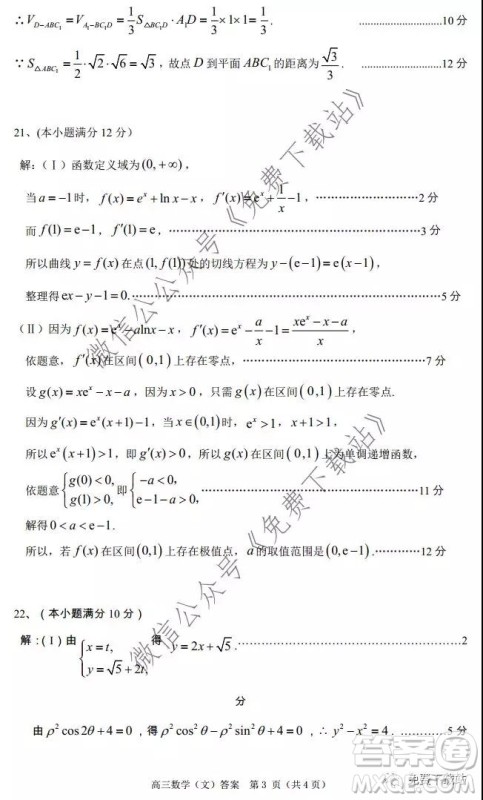 ∴V_{D-ABC₁} = V_{A₁-BC₁D} = 1/3 S_{△BC₁D} · A₁D = 1/3 × 1 × 1 = 1/3. ……………………10分
∵ S_{△ABC₁} = 1/2 · √2 · √6 = √3，故点 D 到平面 ABC₁ 的距离为 √3/3. ……………………12分
21、(本小题满分 12 分）
解:（Ⅰ）函数定义域为(0,+∞)，
当 a=-1时，f(x)=eˣ+ln x-x，f′(x)=eˣ+1/x-1，……………………2分
而 f(1)=e-1，f′(1)=e，……………………3分
所以曲线 y=f(x)在点(1, f(1))处的切线方程为 y-(e-1)=e(x-1)，
整理得 ex-y-1=0.……………………5分
(Ⅱ）因为 f(x)=eˣ-alnx-x，f′(x)=eˣ-a/x-1=(xeˣ-x-a)/x，
依题意，f′(x)在区间(0,1)上存在零点，……………………7分
设 g(x)=xeˣ-x-a，因为 x>0，只需 g(x)在区间(0,1)上存在零点.
因为 g′(x)=eˣ(x+1)-1，当 x∈(0,1)时，eˣ>1，x+1>1，
所以 eˣ(x+1)>1，即 g′(x)>0，所以 g(x)在区间(0,1)上为单调递增函数，
依题意 {g(0)<0, g(1)>0, 即 {-a<0, e-1-a>0, ……………………11分
解得 0<a<e-1.
所以，若 f(x)在区间(0,1)上存在极值点，a的取值范围是(0,e-1).……………12分
22、（本小题满分 10 分）
解：（Ⅰ）由 {x=t, y=√5+2t, 得 y=2x+√5. ……………………2
分
由 ρ²cos2θ+4=0，得 ρ²cos²θ-ρ²sin²θ+4=0，∴ y²-x²=4. …………5分
高三数学（文）答案 第 3 页（共 4 页）
微信公众号《免费下载站》
微信公众号《免费下载站》
答案圈